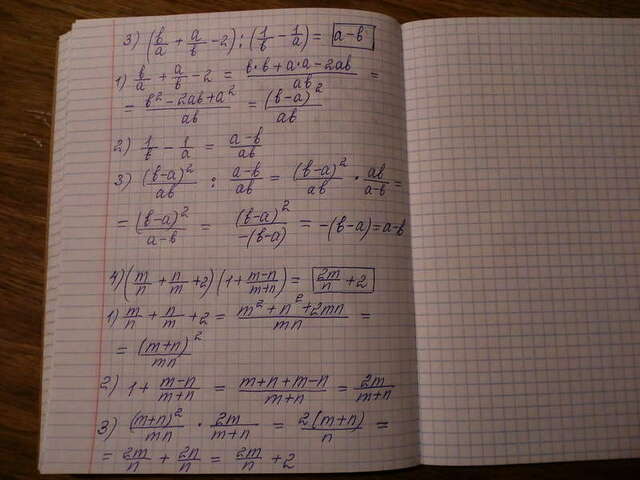 3) (b/a + a/b - 2) : (1/b - 1/a) = a-b
1) b/a + a/b - 2 = (b·b + a·a - 2ab)/ab =
= (b² - 2ab + a²)/ab = (b-a)²/ab
2) 1/b - 1/a = (a-b)/ab
3) (b-a)²/ab : (a-b)/ab = (b-a)²/ab · ab/(a-b) =
= (b-a)²/(a-b) = (b-a)²/-(b-a) = -(b-a) = a-b
4) (m/n + n/m + 2) (1 + (m-n)/(m+n)) = 2m/n + 2
1) m/n + n/m + 2 = (m² + n² + 2mn)/mn =
= (m+n)²/mn
2) 1 + (m-n)/(m+n) = (m+n+m-n)/(m+n) = 2m/(m+n)
3) (m+n)²/mn · 2m/(m+n) = 2(m+n)/n =
= 2m/n + 2n/n = 2m/n + 2